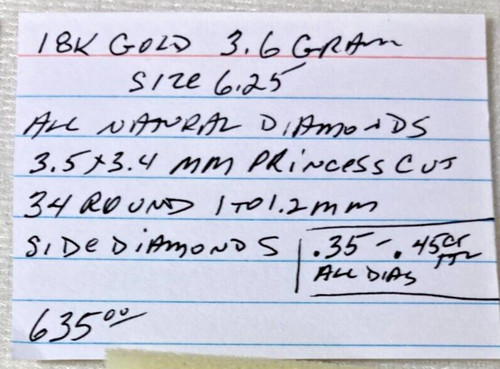 18K GOLD 3.6 GRAM
SIZE 6.25
ALL NATURAL DIAMONDS
3.5 x 3.4 MM PRINCESS CUT
34 ROUND 1 TO 1.2 MM
SIDE DIAMONDS
.35 - .45 CT TTL
ALL DIAS
635⁰⁰